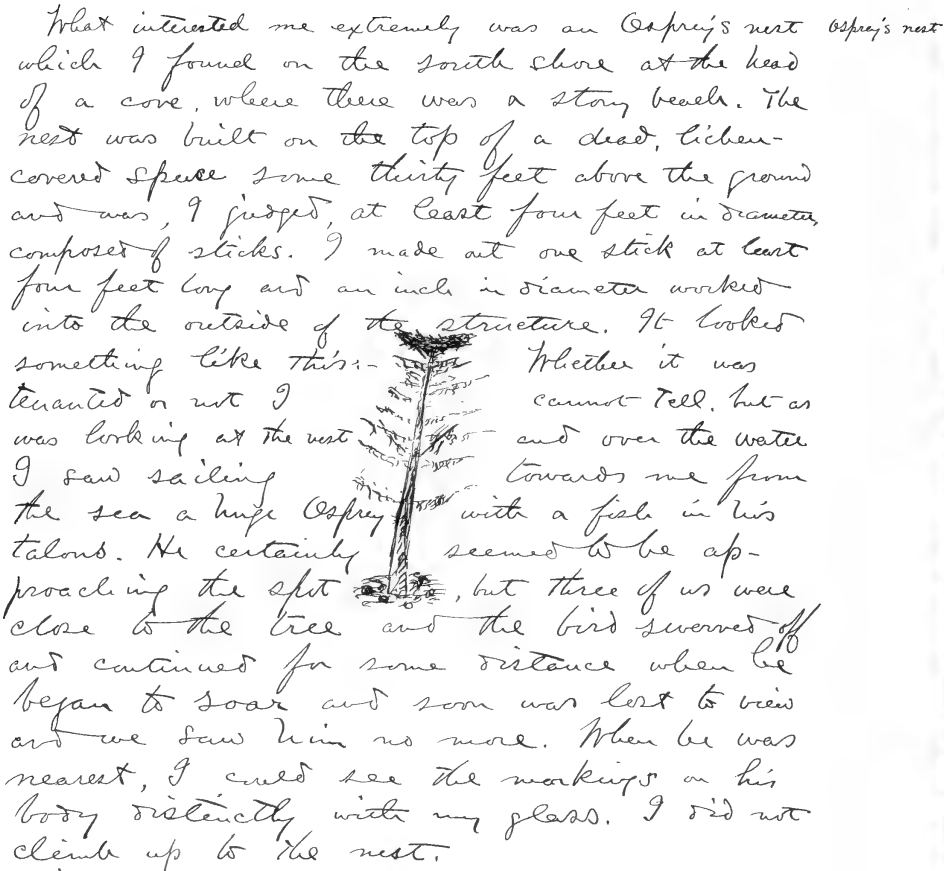 What interested me extremely was an Osprey's nest
Osprey's nest
which I found on the south shore at the head
of a cove, where there was a stony beach. The
nest was built on the top of a dead, lichen-
covered spruce some thirty feet above the ground
and was, I judged, at least four feet in diameter,
composed of sticks. I made out one stick at least
four feet long and an inch in diameter worked
into the outside of the structure. It looked
something like this:- Whether it was
tenanted or not I cannot tell, but as
was looking at the nest and over the water
I saw sailing towards me from
the sea a huge Osprey with a fish in his
talons. He certainly seemed to be ap-
proaching the spot, but three of us were
close to the tree and the bird swerved off
and continued for some distance when he
began to soar and soon was lost to view
and we saw him no more. When he was
nearest, I could see the markings on his
body distinctly with my glass. I did not
climb up to the nest.